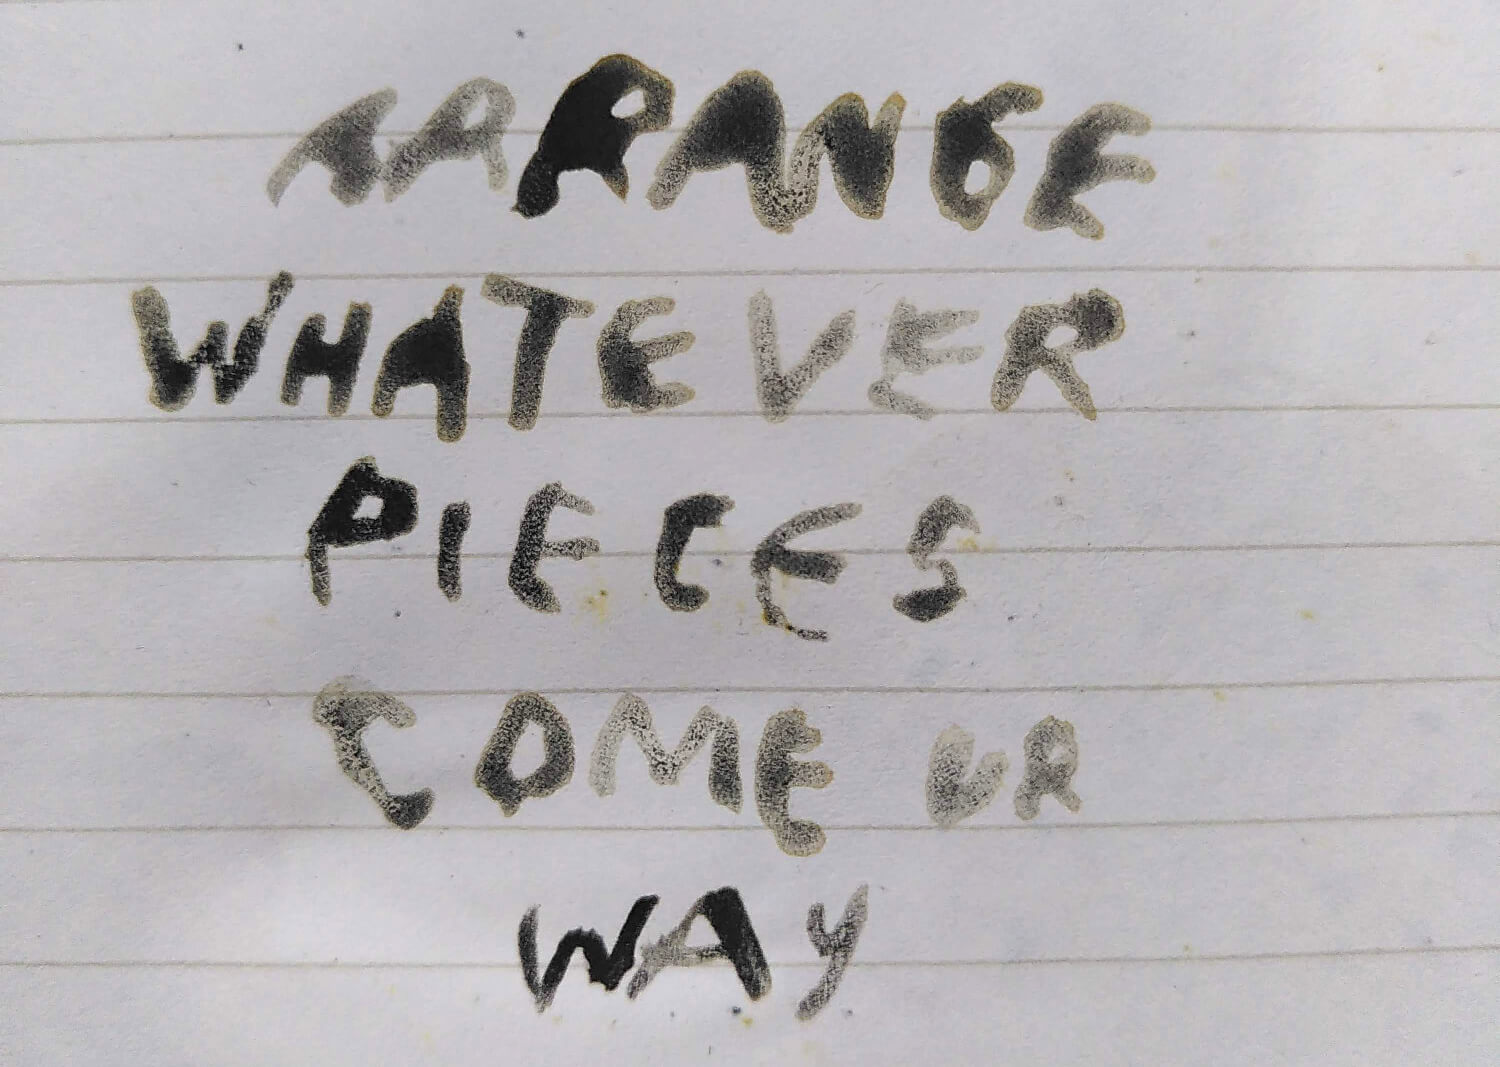 ARRANGE
WHATEVER
PIECES
COME UR
WAY